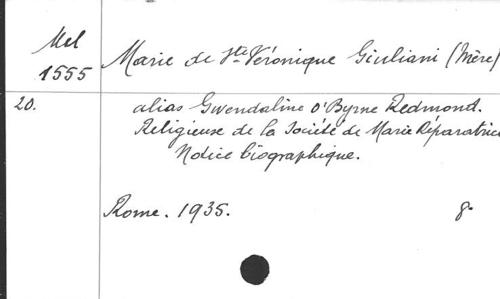 Mel
1555
Marie de Ste Véronique Giuliani (Mère)
20.
alias Gwendaline O'Byrne Redmond.
Religieuse de la Société de Marie Réparatrice
Notice biographique.
Rome. 1935.
8º